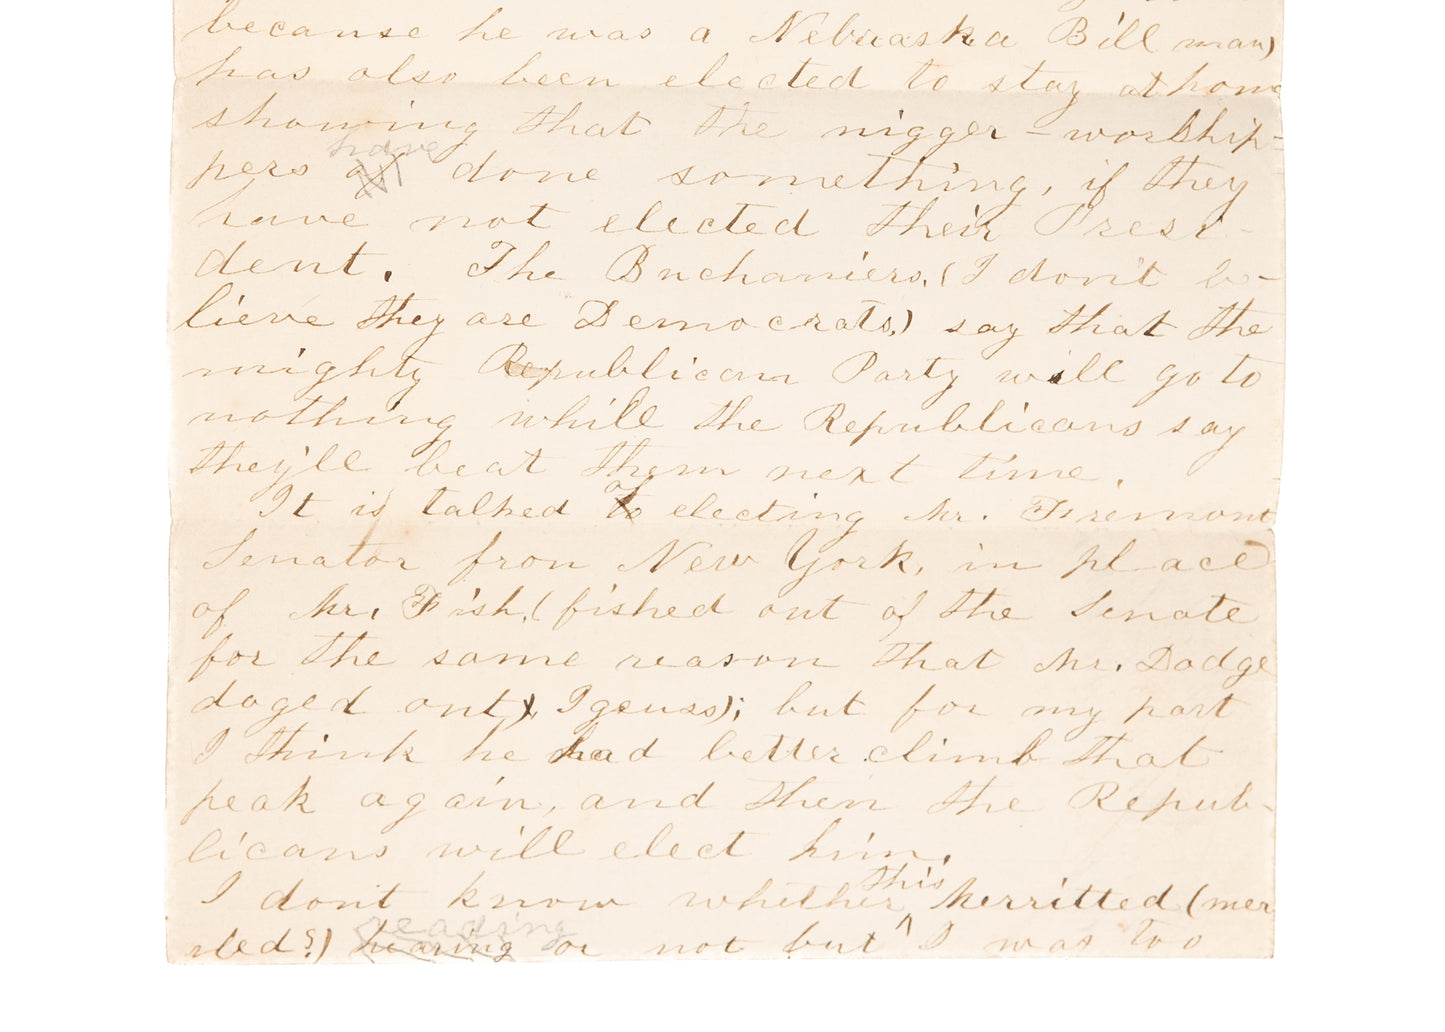 because he was a Nebraska Bill man)
has also been elected to stay at home
showing that the nigger-worship-
pers have done something, if they
have not elected their Presi-
dent. The Buchaniers, (I don't be-
lieve they are Democrats,) say that the
mighty Republican Party will go to
nothing while the Republicans say
they'll beat them next time.
It is talked of electing Mr. Firemont
Senator fron New York, in place
of Mr. Fish, (fished out of the Senate
for the same reason that Mr. Dodge
doged out, I geuss); but for my part
I think he had better climb that
peak again, and then the Repub-
licans will elect him.
I dont know whether this merritted (mer
ited?) reading
hearing or not but I was too